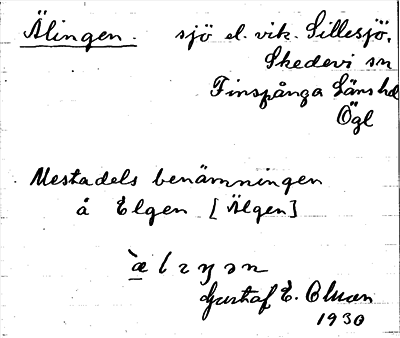 Älingen. sjö el. vik. Lillesjö,
Skedevi sn
Finspånga Läns hd
Ögl
Mestadels benämningen
å Elgen [Älgen]
Gustaf E. Olman
1930